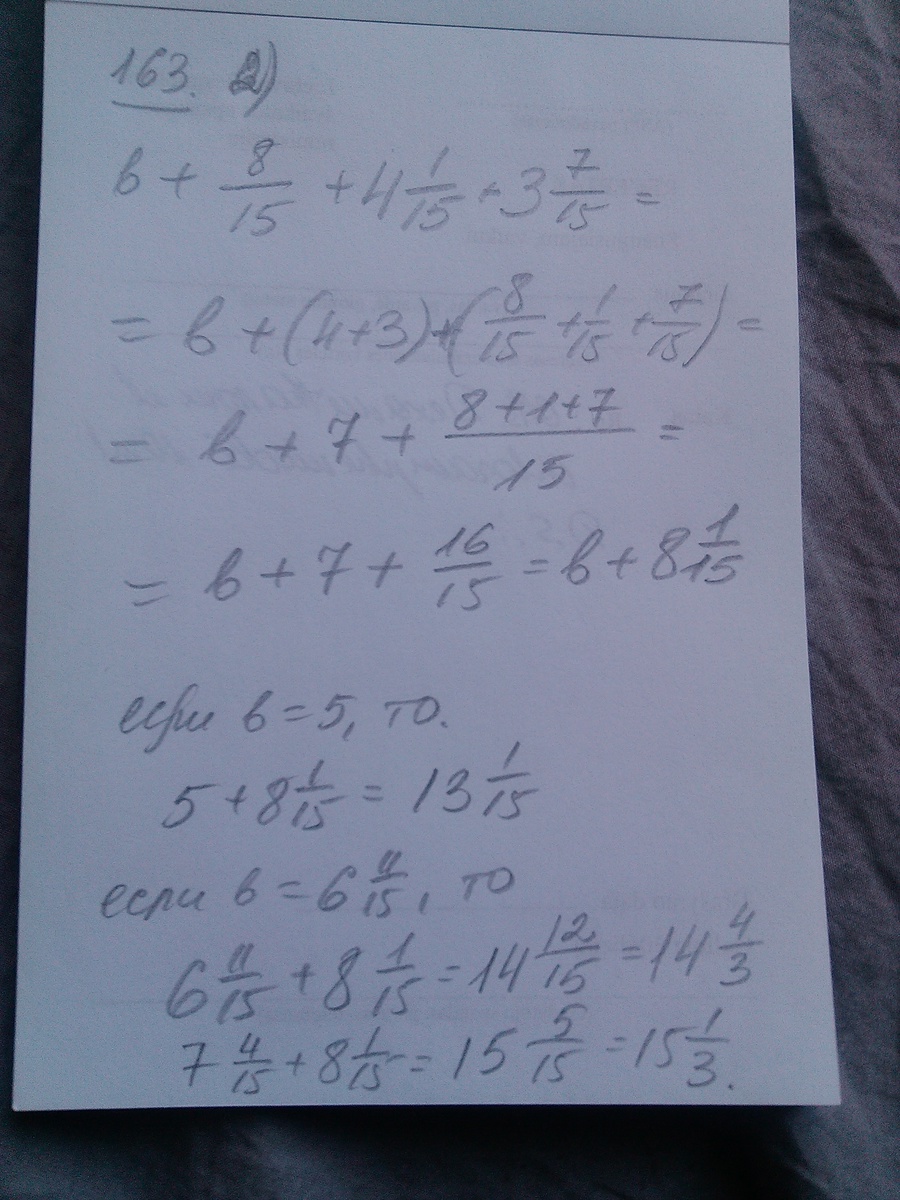 163. 2)
в + 8/15 + 4 1/15 + 3 7/15 =
= в + (4+3) + (8/15 + 1/15 + 7/15) =
= в + 7 + (8+1+7)/15 =
= в + 7 + 16/15 = в + 8 1/15
если в = 5, то.
5 + 8 1/15 = 13 1/15
если в = 6 11/15, то
6 11/15 + 8 1/15 = 14 12/15 = 14 4/3
7 4/15 + 8 1/15 = 15 5/15 = 15 1/3.